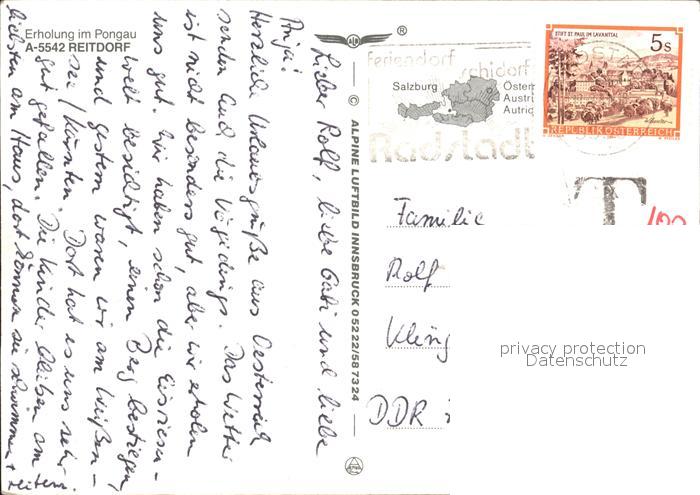 Erholung im Pongau
A-5542 REITDORF
Lieber Rolf, liebe Gabi und liebe
Anja!
Herzliche Urlaubsgrüße aus Oesterreich
senden Euch die Das Wetter
ist nicht besonders gut, aber wir erholen
uns gut. Wir haben schon die Eisriesen-
welt besichtigt, einen Berg bestiegen,
und gestern waren wir am Weißen-
see / Kärnten. Dort hat es uns sehr
gut gefallen. Die Kinder bleiben am
liebsten am Haus, dort können sie schwimmen + reiten.
ALW
®
© ALPINE LUFTBILD INNSBRUCK 05222/587324
Feriendorf
Schidorf
Salzburg
Österr
Austri
Autric
Radstadt
STIFT ST. PAUL IM LAVANTTAL
5 S
REPUBLIK ÖSTERREICH
T
Familie
Rolf
Kling
DDR
privacy protection
Datenschutz